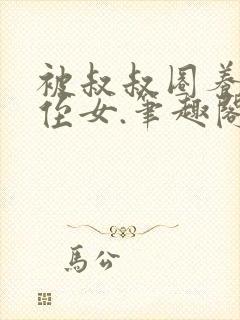 被叔叔圈养
侄女.笔趣阁
馬公